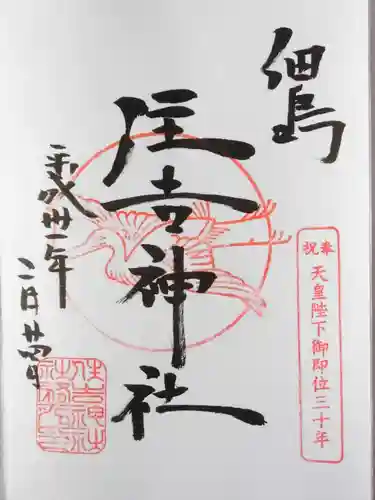 佃島
奉祝
天皇陛下御即位三十年
住吉神社
平成卅一年
二月廿四日